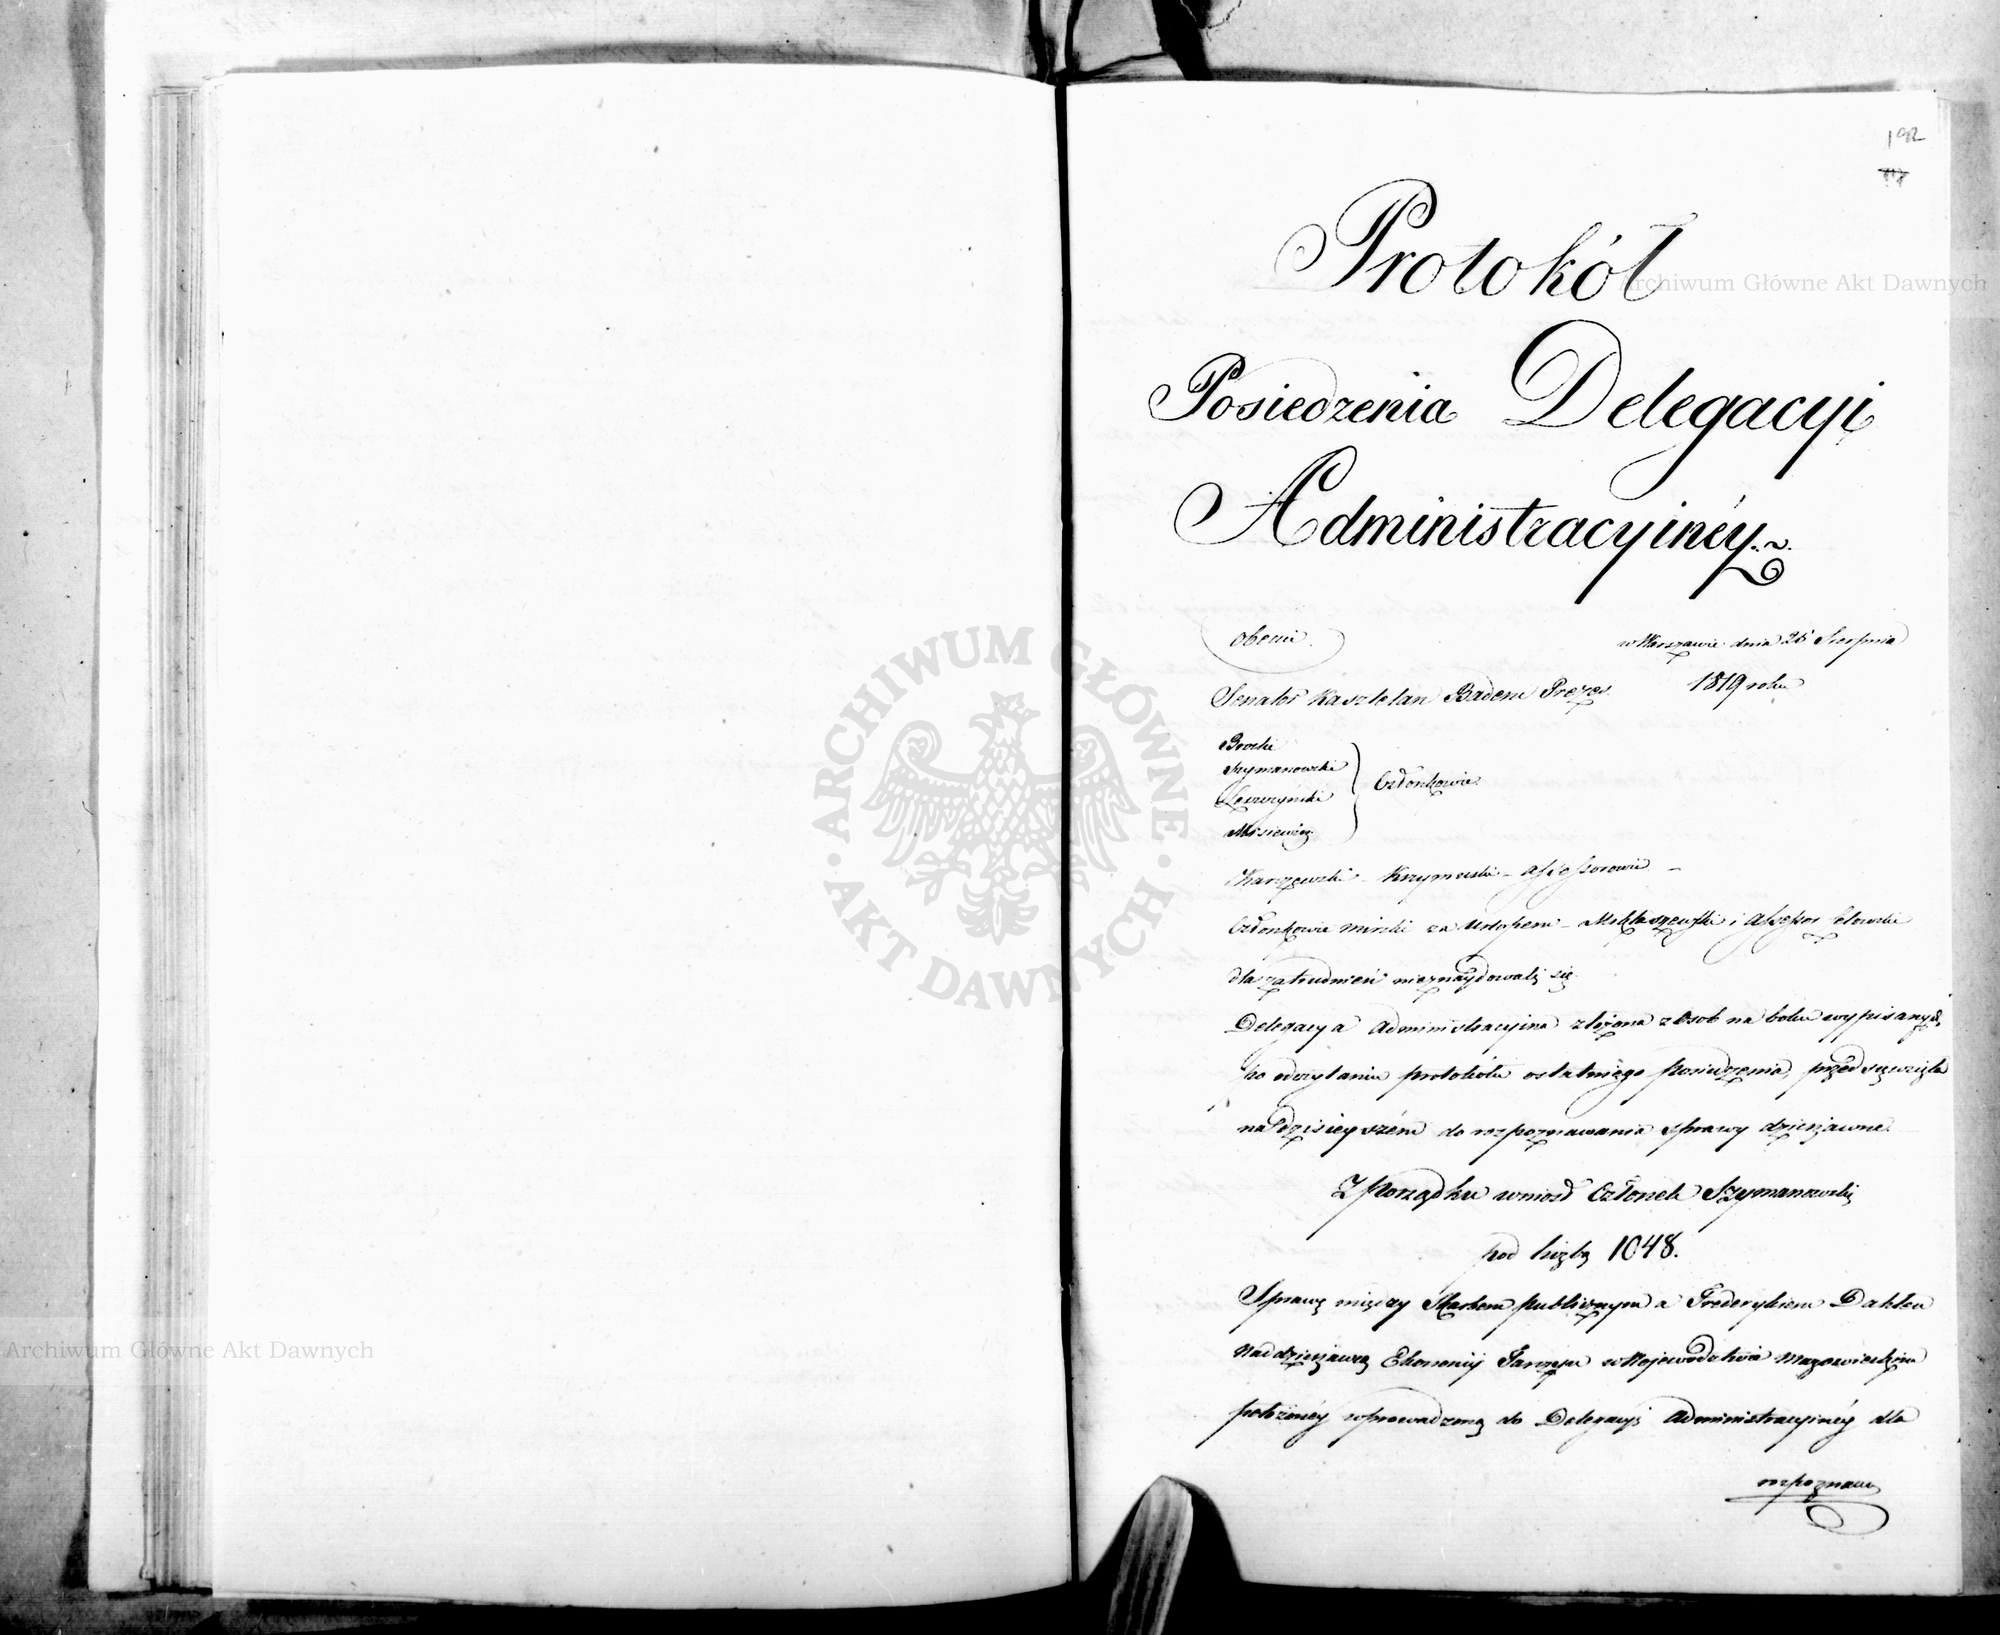 192
Protokół
Posiedzenia Delegacyi
Administracyinéy
obecni.
w Warszawie dnia 25 Sierpnia
1819 roku
Senator Kasztelan Badeni Prezes.
Brocki
Szymanowski
Leszczyński
Misiewicz
Członkowie
Karczewski - Krzymuski - Assessorowie -
Członkowie Minski za Urlopem - Miklaszewski i Assessor
dla zatrudnień nieznaydowali się.
Delegacya Administracyina złożona z Osob na boku wypisanych,
po odczytaniu protokółu ostatniego Posiedzenia, przedsięwzięła
na dzisieyszém do rozpoznawania sprawy dzierżawne.
Z Porządku wniosł Członek Szymanowski
pod liczbą 1048.
Sprawę między Skarbem publicznym a Frederykiem Dakken
Naddzierżawcą Ekonomij w Wojewodztwie Mazowieckim
położonéy wprowadzoną do Delegacyi Administracyinéy dla
rozpoznania
Archiwum Główne Akt Dawnych
ARCHIWUM GŁÓWNE · AKT DAWNYCH ·
Archiwum Główne Akt Dawnych